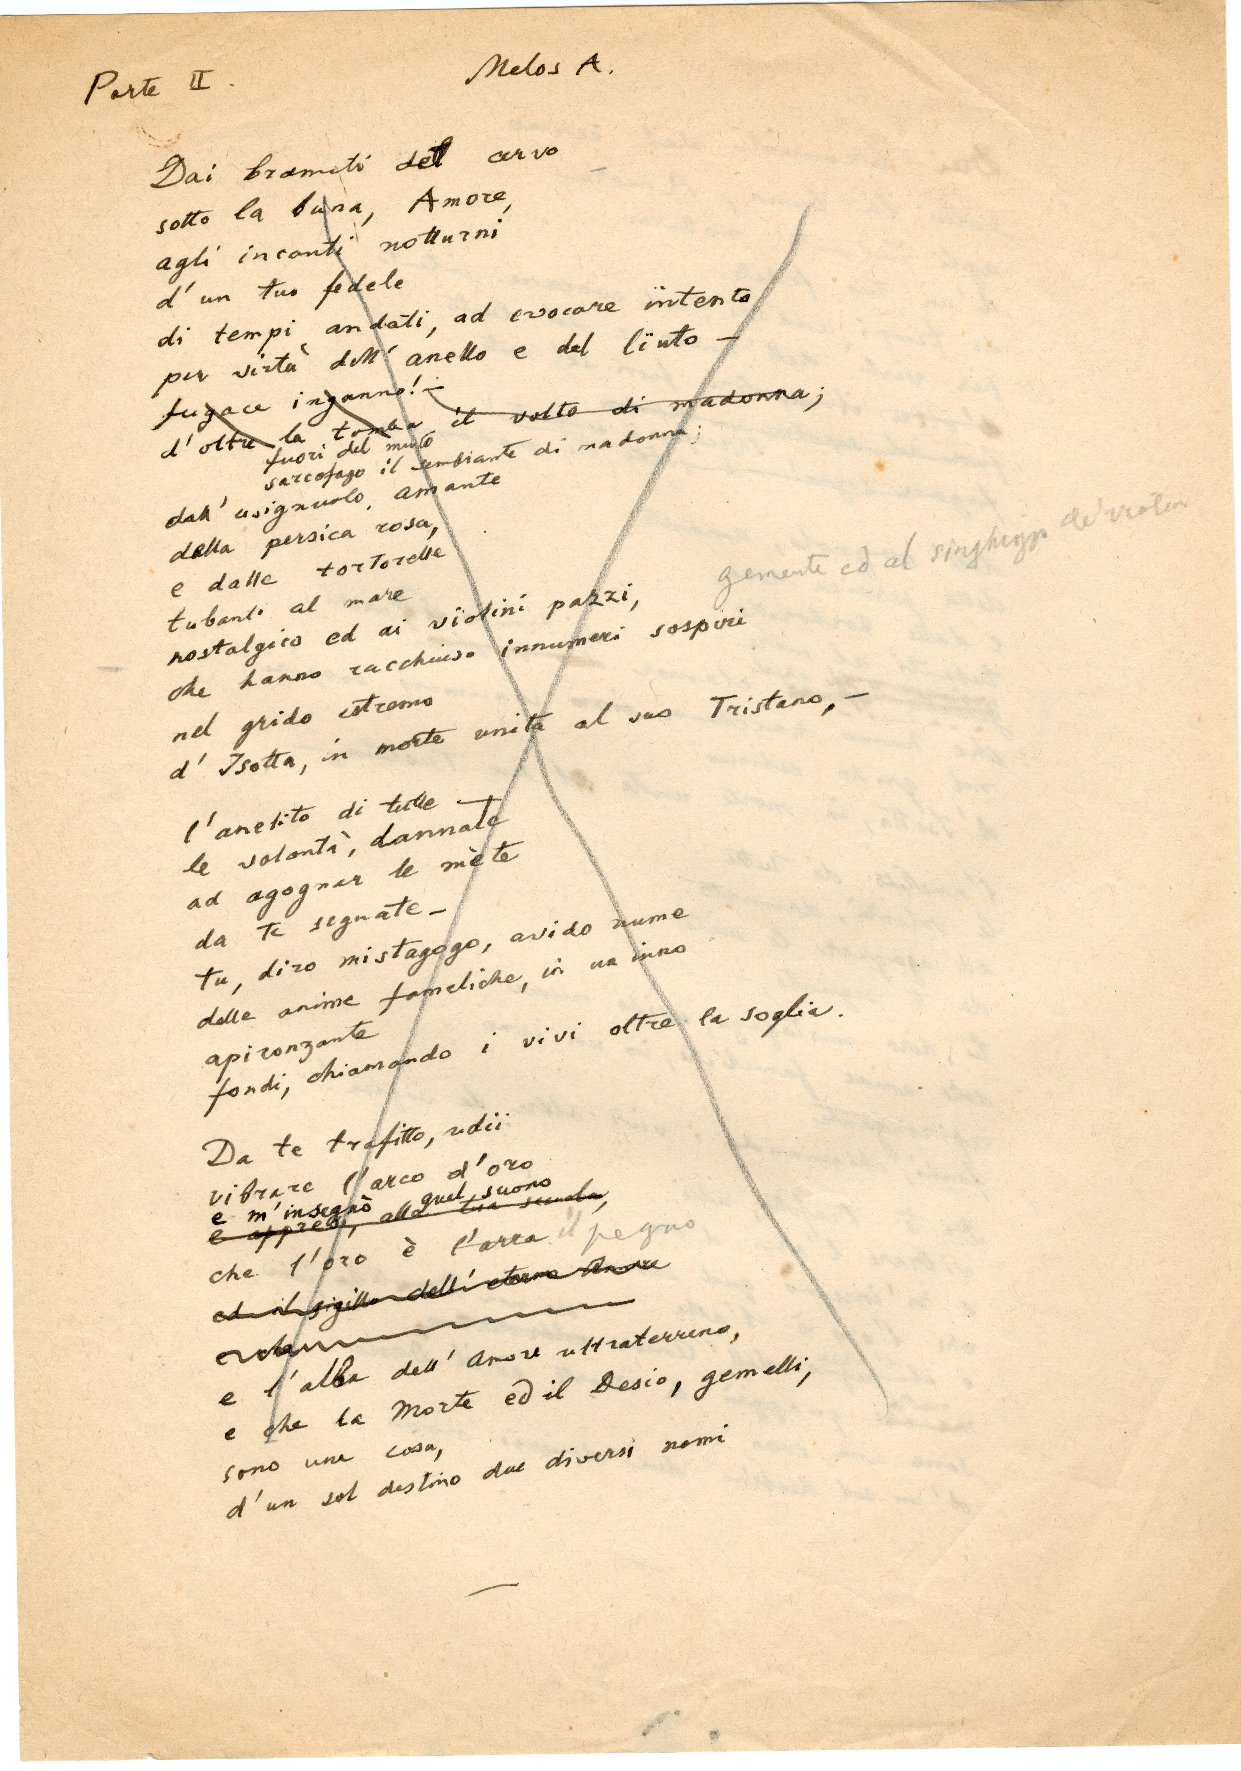 Parte II.
Melos A.
Dai bramiti del cervo
sotto la luna, Amore,
agli incanti notturni
d'un tuo fedele
di tempi andati, ad evocare ïntento
per virtù dell'anello e del lïuto —
fugace inganno! —
d'oltre la tomba il volto di madonna;
fuori del muto
sarcofago il sembiante di madonna;
dall'usignuolo, amante
della persica rosa,
e dalle tortorelle
tubanti al mare
gemente ed al singhiozzo de' violini
nostalgico ed ai vïolini pazzi,
che hanno racchiuso innumeri sospiri
nel grido estremo
d'Isotta, in morte unita al suo Tristano, —
l'anelito di tutte —
le volontà, dannate
ad agognar le mète
da te segnate —
tu, diro mistagogo, avido nume
delle anime fameliche, in un inno
apironzante
fondi, chiamando i vivi oltre la soglia.
Da te trafitto, udii
vibrare l'arco d'oro
e m'insegnò quel suono
e appresi, alla tua scuola,
che l'oro è l'arra il pegno
ed il sigillo dell'eterno Amore
e l'alba dell'Amore ultraterreno,
e che la Morte ed il Desio, gemelli,
sono una cosa,
d'un sol destino due diversi nomi